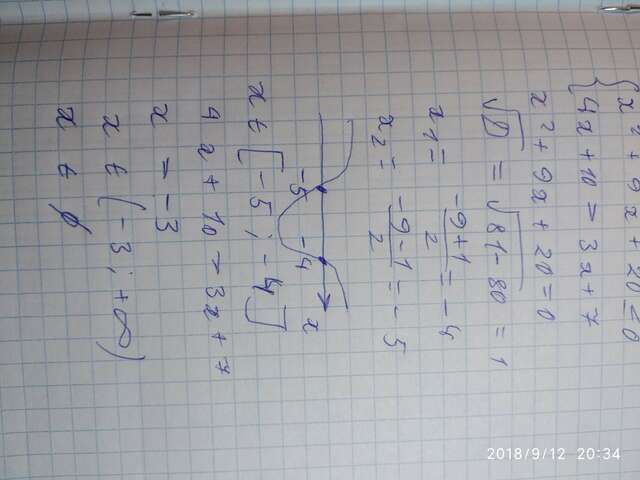 x² + 9x + 20 ≤ 0
4x + 10 > 3x + 7
x² + 9x + 20 = 0
√D = √81-80 = 1
x₁ = -9+1/2 = -4
x₂ = -9-1/2 = -5
-5 -4 x
x ∈ [-5; -4]
4x + 10 > 3x + 7
x = -3
x ∈ (-3; +∞)
x ∈ ∅
2018/9/12 20:34